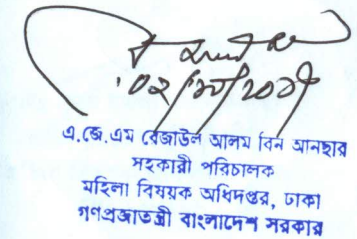 ০২/১০/২০১৭
এ.জে.এম রেজাউল আলম বিন আনছার
সহকারী পরিচালক
মহিলা বিষয়ক অধিদপ্তর, ঢাকা
গণপ্রজাতন্ত্রী বাংলাদেশ সরকার